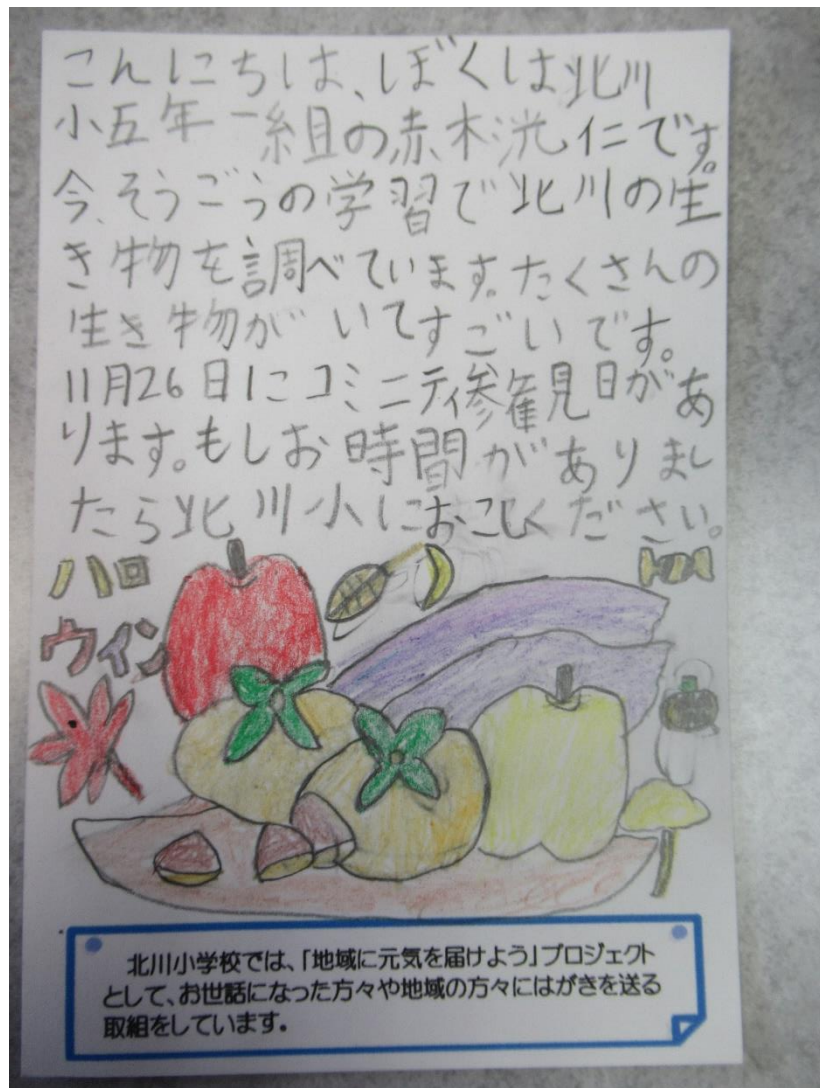 こんにちは、ぼくは北川
小五年一組の赤木洸仁です。
今、そうごうの学習で北川の生
き物を調べています。たくさんの
生き物がいてすごいです。
11月26日にコミニティ参観日があ
ります。もしお時間がありまし
たら北川小におこしください。
ハロ
ウィン
北川小学校では、「地域に元気を届けよう」プロジェクト
として、お世話になった方々や地域の方々にはがきを送る
取組をしています。